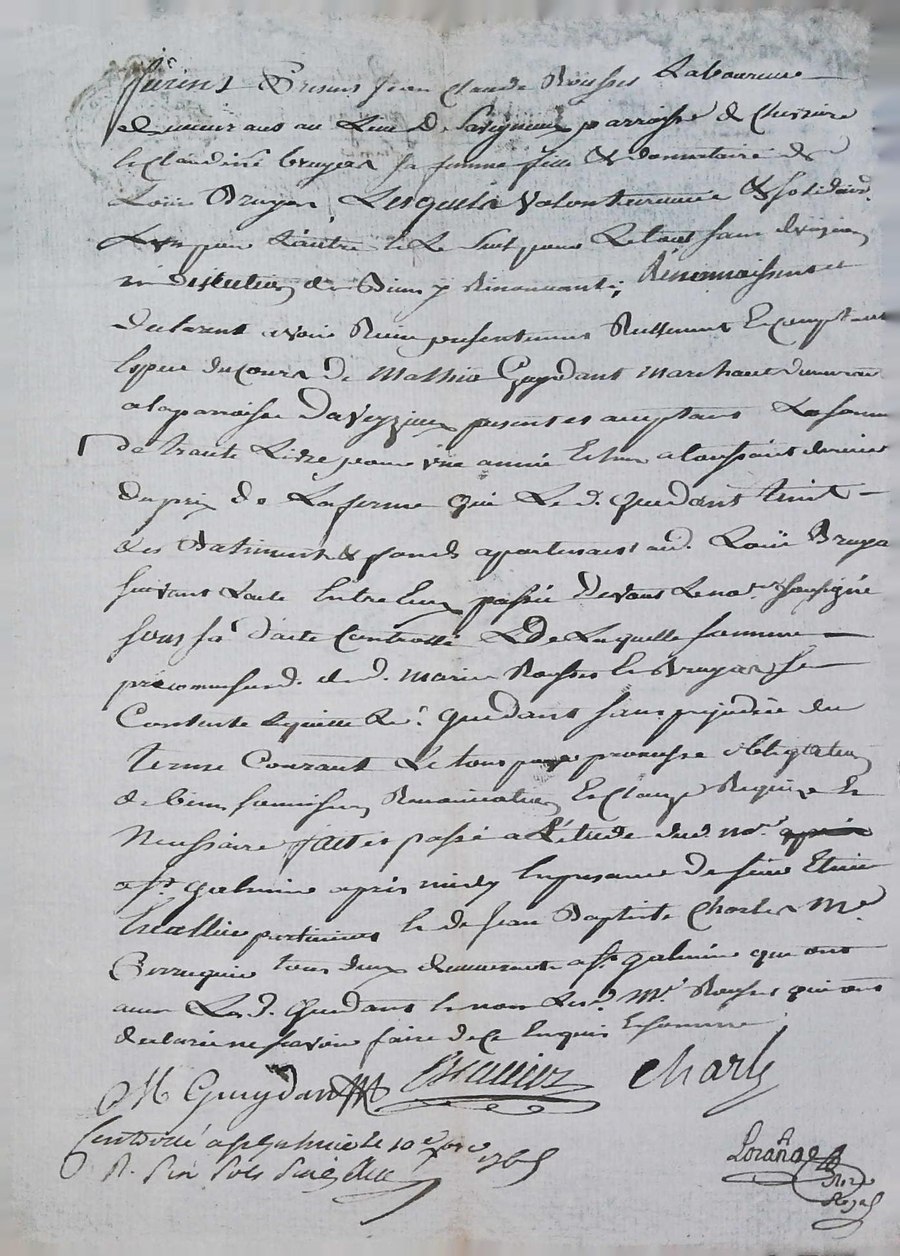 furent Presens Jean Claude Rousset Laboureur
demeurans au Lieu de Savigneux parroisse de Chevriere
et Claudine bruyere sa femme fille & donnataire de
Loüis Bruyere, Lesquels volontairement & solidair.
L'un pour L'autre et Le Seul pour Le tout sans division
ni discution de Biens y Renonçants; Reconnoissent et
declarent avoir Reçu presentement Reellement et comptant
Espece du cours de Mathie Guydant Marchant demeurant
a la paroisse D'aveyzieux present et acceptant La somme
de trante Livre pour une année Echue a toussaint derniere
du prix de La ferme que Le d. guidant tient
des Batiments & fonds apartenant aud. Loüis Bruyere
suivant L'acte Entre Eux passée devant Le no.re soussigné
sous sa datte Controllé & De Laquelle somme
lesd. mariés Rousset et Bruyere se
Contente & quitte Led. guidant sans prejudice du
terme Courant Le tout par promesse obligation
de biens soumission Renonciation & Clause Requise et
Necessaire fait et passé a L'etude dud. no.re
a St galmier apres midy En presence de sieur Etiene
et de Jean Baptiste Charles Me
Perruquier tous deux demeurants a St galmier qui ont
avec Led. guidant et non Lesd. M. Rousset qui ont
declaré ne sçavoir faire de ce Enquis & sommé
M Guydant Charle
Controllé a St galmier le 10e 1765
R.
Lorange
Nore
Royal